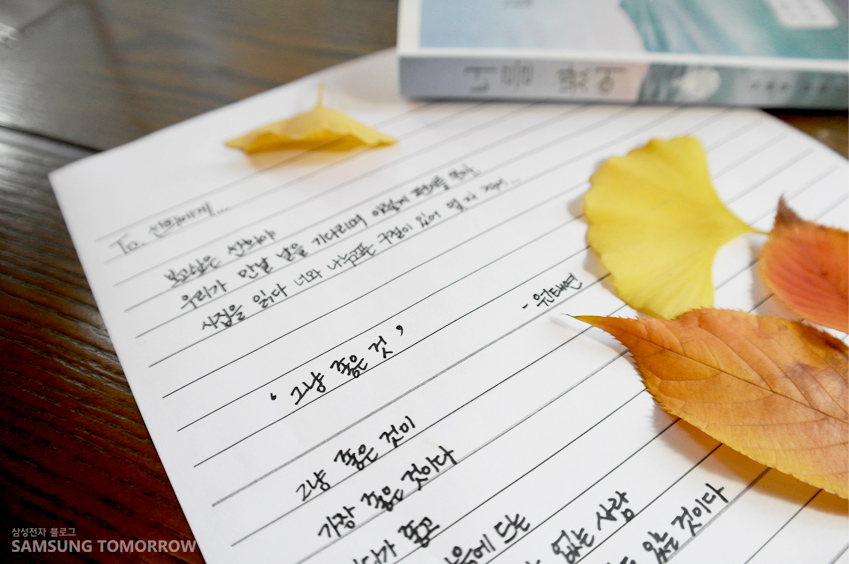 너를 봤어
To. 산화에게...
보고싶은 산화야
우리가 만날 날을 기다리며 이렇게 편지를 쓴다.
시집을 읽다 너와 나누고픈 구절이 있어 몇 자 적어...
- 원태연
‘그냥 좋은 것’
그냥 좋은 것이
가장 좋은 것이다
좋고
에 드는
없는 사람
있는 것이다
삼성전자 블로그
SAMSUNG TOMORROW